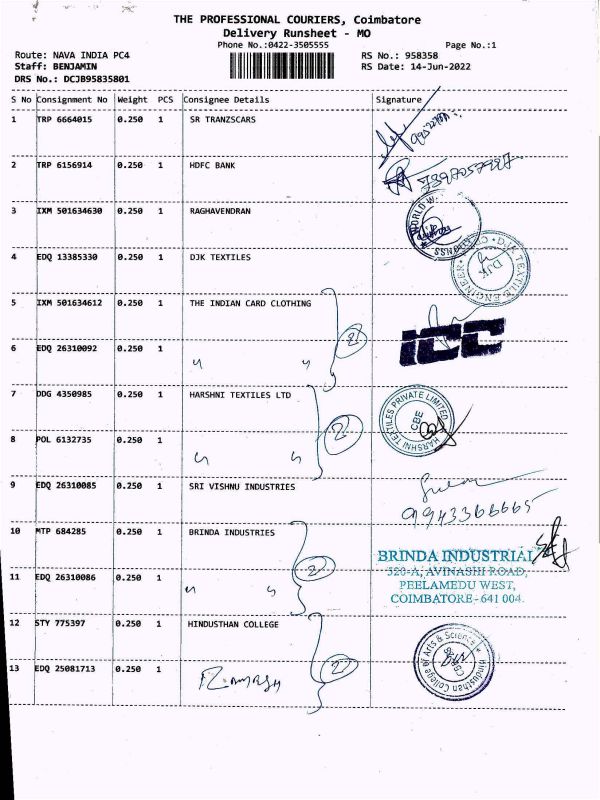 THE PROFESSIONAL COURIERS, Coimbatore
Delivery Runsheet - MO
Phone No.:0422-3505555
Page No.:1
Route: NAVA INDIA PC4
Staff: BENJAMIN
DRS No.: DCJB95835801
RS No.: 958358
RS Date: 14-Jun-2022
S No Consignment No Weight PCS Consignee Details Signature
1 TRP 6664015 0.250 1 SR TRANZSCARS
2 TRP 6156914 0.250 1 HDFC BANK
3 IXM 501634630 0.250 1 RAGHAVENDRAN
WORLD W
4 EDQ 13385330 0.250 1 DJK TEXTILES
DJK TEXTILE ENGINEER
DJK
5 IXM 501634612 0.250 1 THE INDIAN CARD CLOTHING
2
ICC
6 EDQ 26310092 0.250 1 " "
7 DDG 4350985 0.250 1 HARSHNI TEXTILES LTD
2
HARSHNI TEXTILES PRIVATE LIMITED
CBE
8 POL 6132735 0.250 1 " "
9 EDQ 26310085 0.250 1 SRI VISHNU INDUSTRIES
9943366665
10 MTP 684285 0.250 1 BRINDA INDUSTRIES
2
BRINDA INDUSTRIAL
520-A, AVINASHI ROAD,
PEELAMEDU WEST,
COIMBATORE - 641 004.
11 EDQ 26310086 0.250 1 " "
12 STY 775397 0.250 1 HINDUSTHAN COLLEGE
2
Hindusthan College of Arts & Science
CBE
13 EDQ 25081713 0.250 1